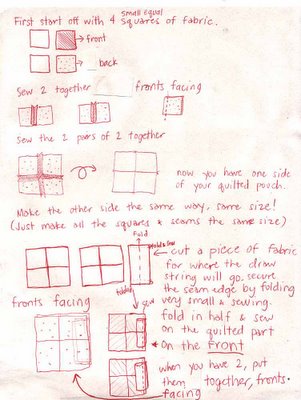 small equal
First start off with 4 squares of fabric.
front
back
Sew 2 together fronts facing
Sew the 2 pairs of 2 together
now you have one side
of your quilted pouch.
Make the other side the same way, same size!
(Just make all the squares & seams the same size)
fold
cut a piece of fabric
for where the draw
string will go, secure
the seam edge by folding
very small & sewing.
fold in half & sew
on the quilted part
* On the front
fronts facing
when you have 2, put
them together, fronts
facing